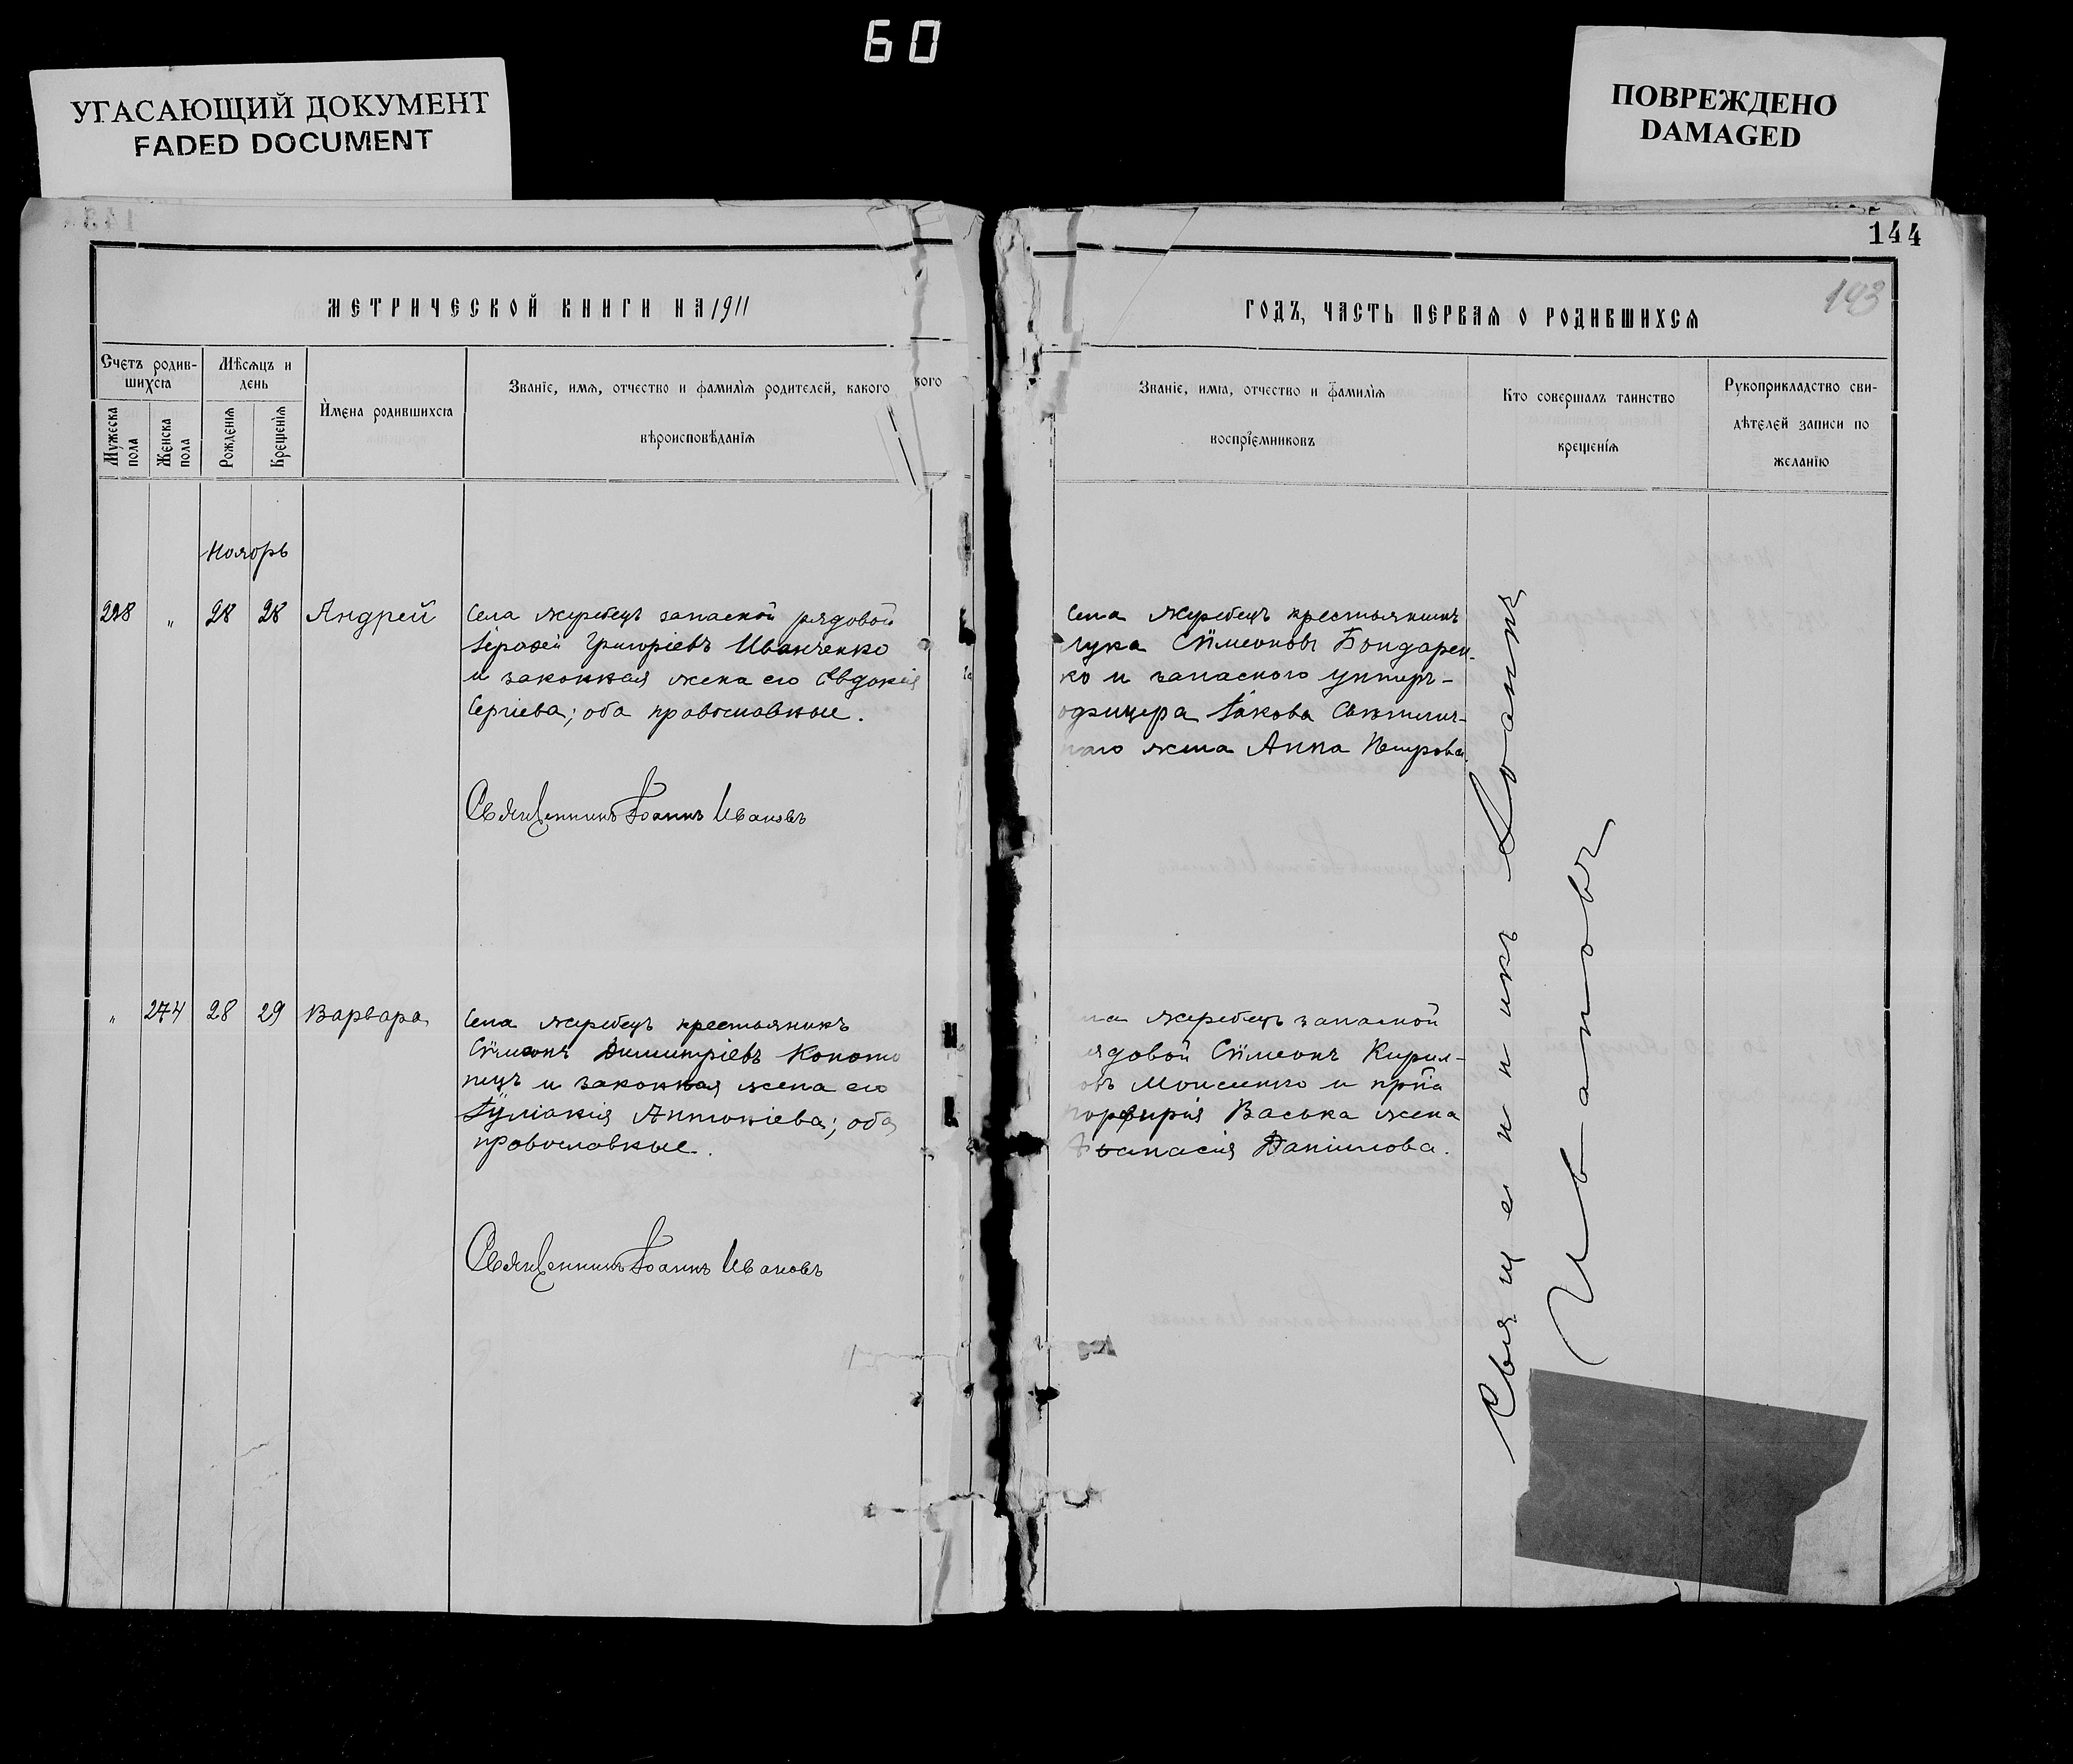 60
УГАСАЮЩИЙ ДОКУМЕНТ
FADED DOCUMENT
ПОВРЕЖДЕНО
DAMAGED
144
143
МЕТРИЧЕСКОЙ КНИГИ НА 1911
Счетъ родив-
шихся
Мужеска пола
Женска пола
Мѣсяцъ и
день
Рожденія
Крещенія
Имена родившихся
Званіе, имя, отчество и фамилія родителей, какого
вѣроисповѣданія
кого
Ноябрь
228 „ 28 28 Андрей
Села Жеребецъ запасной рядовой
Іероѳей Григоріевъ Иванченко
и законная жена его Евдокія
Сергіева; оба православные.
Священникъ Іоаннъ Ивановъ
„ 244 28 29 Варвара
Села Жеребецъ крестьянинъ
Сѵмеонъ Димитріевъ Коното
пецъ и законная жена его
Іуліанія Антоніева; оба
православные.
Священникъ Іоаннъ Ивановъ
ГОДЪ, ЧАСТЬ ПЕРВАЯ О РОДИВШИХСЯ
Званіе, имя, отчество и фамилія
воспріемниковъ
Кто совершалъ таинство
крещенія
Рукоприкладство сви-
дѣтелей записи по
желанію
Села Жеребецъ крестьянинъ
Лука Сѵмеоновъ Бондарен-
ко и запасного унтеръ-
офицера Іакова
жена Анна Петрова.
на Жеребецъ запасной
рядовой Сѵмеонъ Кирил-
овъ Моисеенко и
Порфирія Васька жена
Даніилова.
Священникъ Іоаннъ
Ивановъ